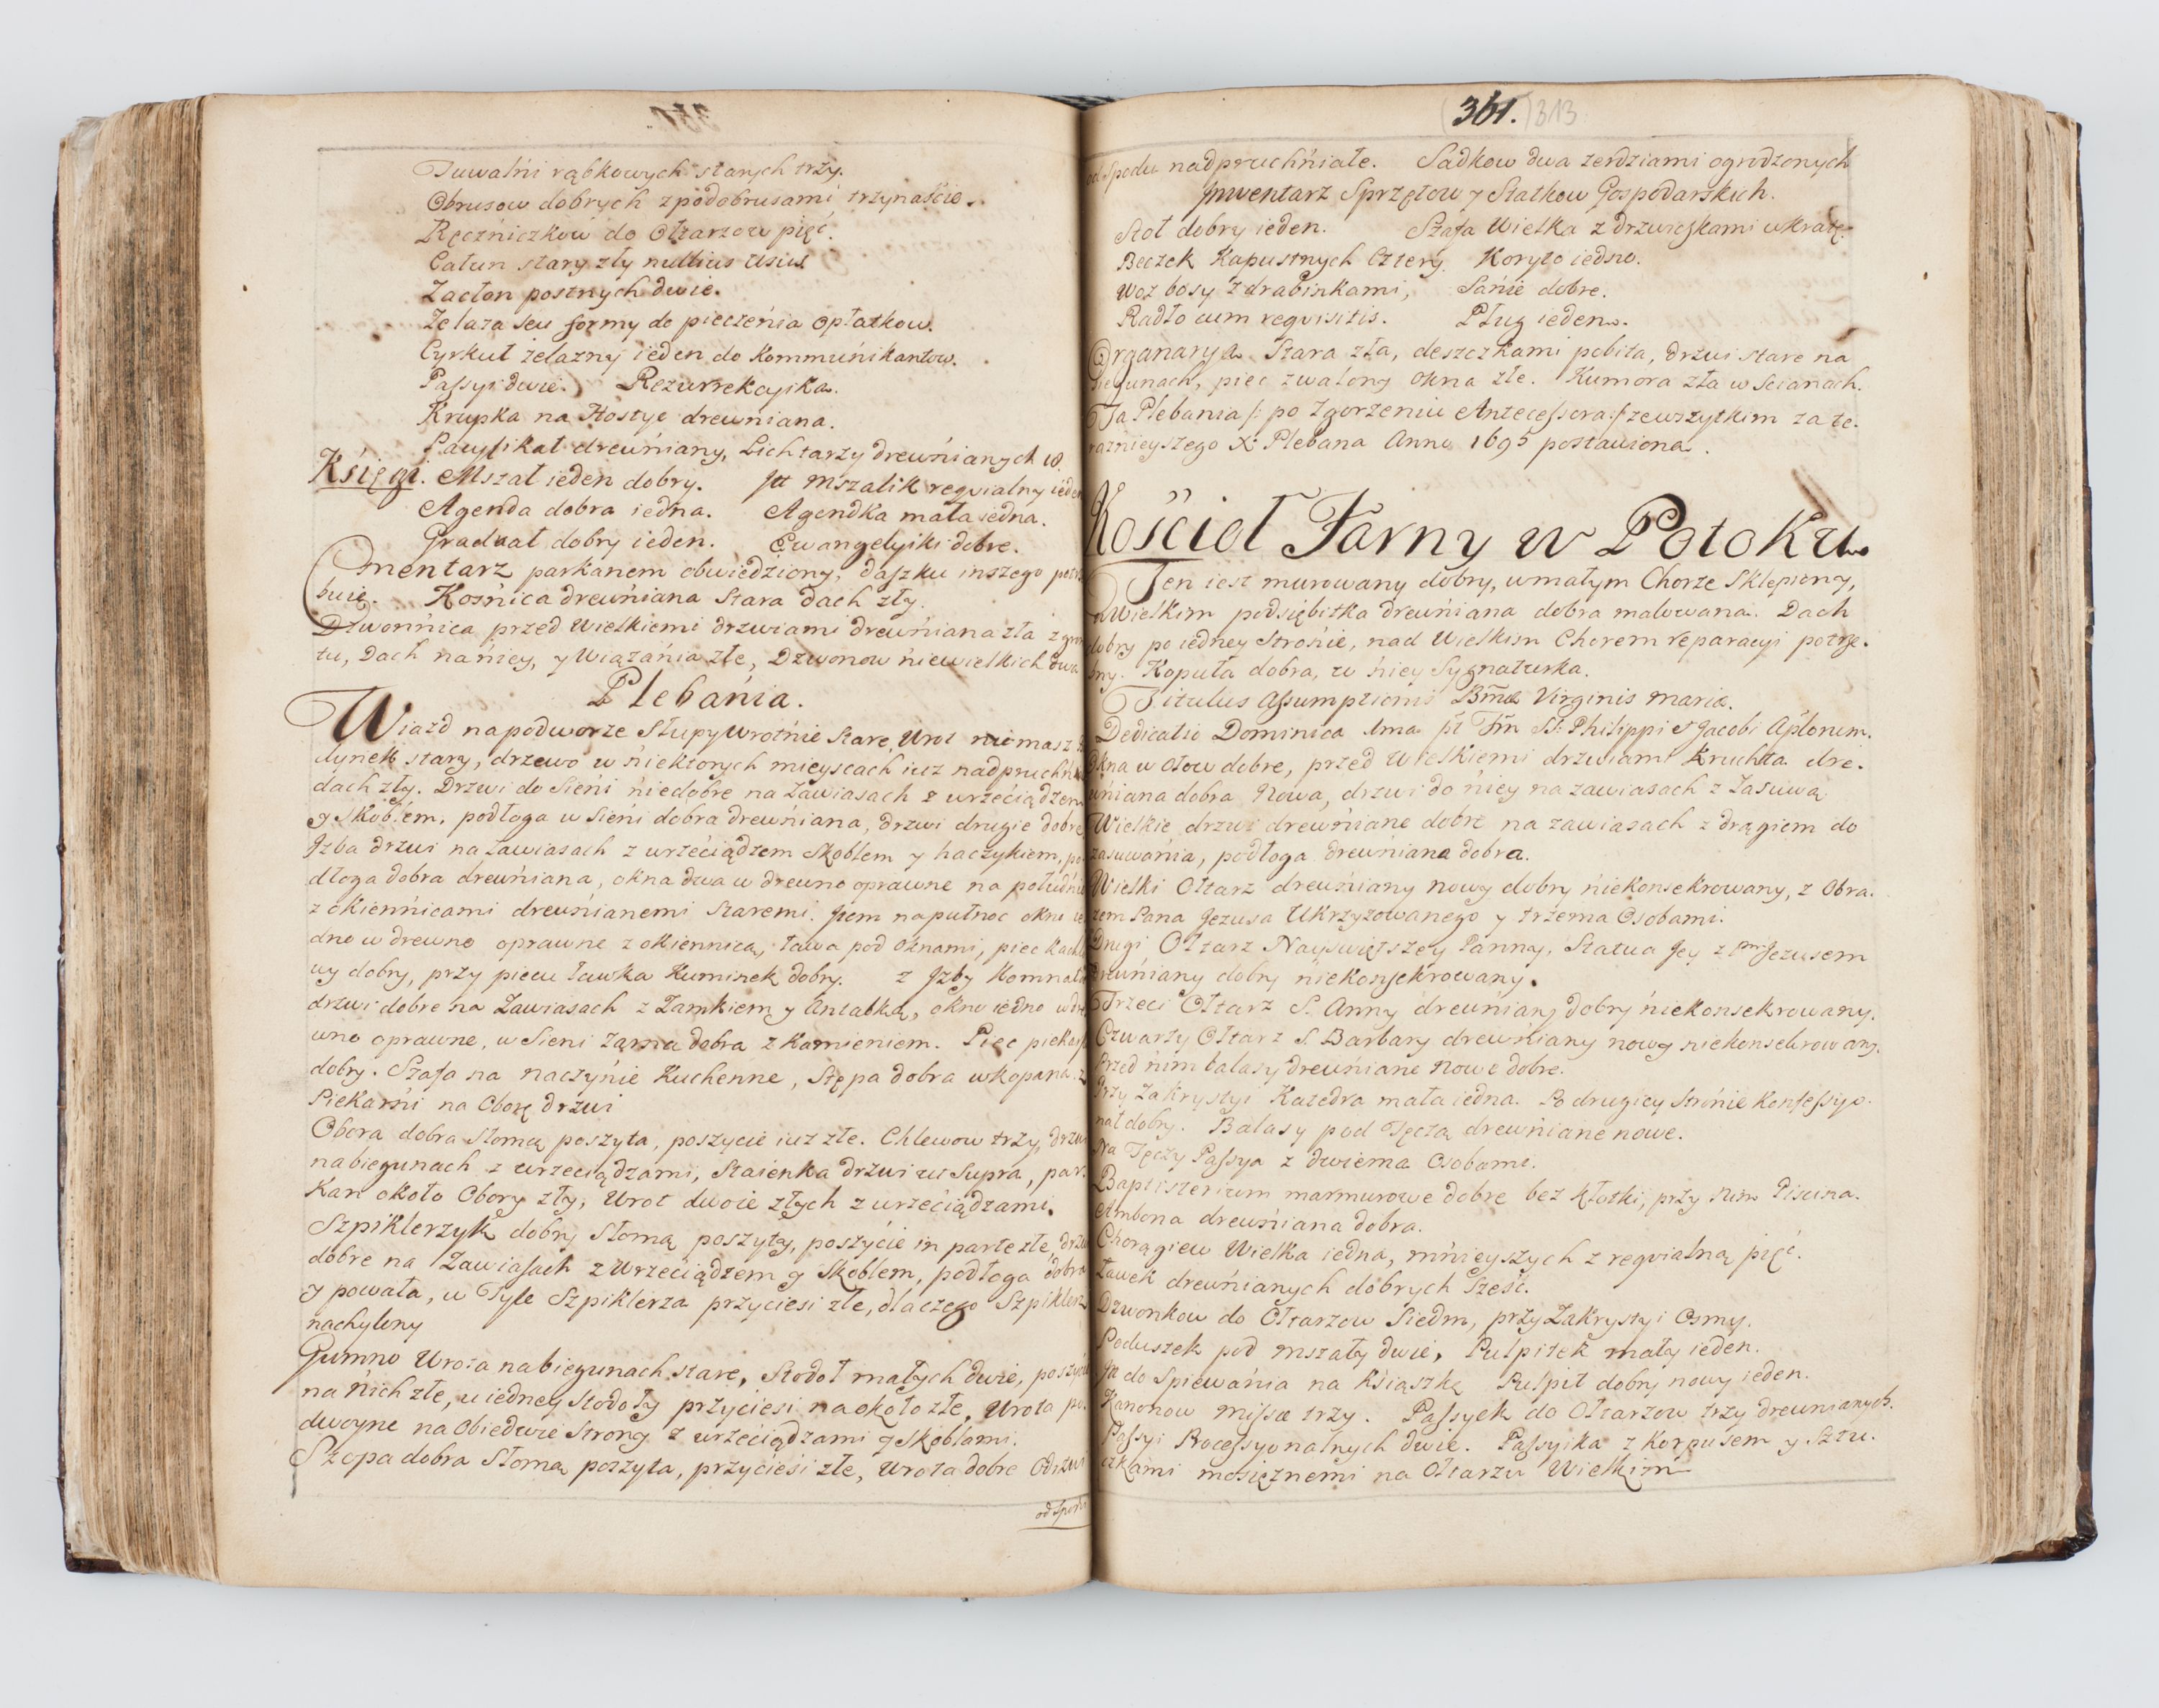 Tuwalni rąbkowych starych trzy.
Obrusow dobrych z podobrusami trzynaście.
Ręczniczkow do Ołtarzow pięć.
Całun stary zły nullius usus
Zasłon postnych dwie.
Żelaza seu formy do pieczenia opłatkow.
Cyrkuł żelazny ieden do Kommunikantow.
Passyi dwie. Rezurrekcyika.
Krupka na Hostye drewniana.
Pacyfikał drewniany, Lichtarzy drewnianych 10.
Księgi. Mszał ieden dobry. It Mszalik requialny ieden
Agenda dobra iedna. Agendka mała iedna.
Graduał dobry ieden. Ewangelyiki dobre.
Cmentarz parkanem obwiedziony, daszku inszego potrze
buie. Kosnica drewniana stara dach zły.
Dzwonnica przed Wielkiemi drzwiami drewniana zła z grun
tu, Dach na niey, y Wiązania złe, Dzwonow niewielkich dwa
Plebania.
Wiazd na podworze Słupy wrotnie stare, Wrot nie masz
dynek stary, drzewo w niektorych mieyscach iuz nadpruchn
dach zły. Drzwi do Sieni niedobre na zawiasach z wrzeciądzem
y Skoblem, podłoga w Sieni dobra drewniana, drzwi drugie dobre
Izba drzwi na zawiasach z wrzeciądzem Skoblem y haczykiem, po
dłoga dobra drewniana, okna dwa w drewno oprawne na południe
z okiennicami drewnianemi staremi. Item na pułnoc okno ie
dno w drewno oprawne z okiennicą, ława pod oknami, piec kachlo
wy dobry, przy piecu ławka Kuminek dobry. z Izby Komnata
drzwi dobre na Zawiasach z Zamkiem y Antabką, okno iedno w dre
wno oprawne, w Sieni Zarna dobra z Kamieniem. Piec piekar
dobry. Szafa na naczynie Kuchenne, Stępa dobra wkopana. z
Piekarni na Oborę drzwi
Obora dobra słomą poszyta, poszycie iuz złe. Chlewow trzy, drzwi
na biegunach z wrzeciądzami, Staienka drzwi ut supra, par-
Kan około Obory zły, Wrot dwoie złych z wrzeciądzami.
Szpiklerzyk dobry słomą poszyty, poszycie in parte złe, drzwi
dobre na Zawiasach z Wrzeciądzem y Skoblem, podłoga dobra
y powała, w Tyle Szpiklerza przyciesi złe, dlaczego Szpiklerz
nachylony
Gumno Wrota na biegunach stare, Stodoł małych dwie, poszycie
na nich złe, u iedney stodoły przyciesi naokoło złe, Wrota po-
dwoyne na Obiedwie strony z wrzeciądzami y Skoblami.
Szopa dobra Słomą poszyta, przyciesi złe, Wrota dobre Odrzwi
od Spodu
361. 313
od Spodu nadpruchniałe. Sadkow dwa zerdziami ogrodzonych
Inwentarz Sprzętow y Statkow Gospodarskich.
Stoł dobry ieden. Szafa Wielka z drzwiczkami w kratę.
Beczek Kapustnych Cztery. Koryto iedno.
Woz bosy z drabinkami, Sanie dobre.
Radło cum requisitis. Pług ieden.
Organarya Stara zła, deszczkami pobita, drzwi stare na
biegunach, piec zwalony okna złe. Kumora zła w scianach.
Ta Plebania /: po zgorzeniu Antecessora :/ zewszytkim za te-
raznieyszego X. Plebana Anno 1695 postawiona.
Kościoł Farny w Potoku
Ten iest murowany dobry, w małym Chorze Sklepiony,
w Wielkim podsiębitka drewniana dobra malowana. Dach
dobry po iedney Stronie, nad Wielkim Chorem reparacyi potrze-
bny. Kopuła dobra, w niey Sygnaturka.
Titulus Assumptionis Bmæ Virginis Mariæ.
Dedicatio Dominica 1ma pt Fm SS: Philippi et Jacobi Aplorum.
Okna w ołow dobre, przed Wielkiemi drzwiami Kruchta dre-
wniana dobra Nowa, drzwi do niey na zawiasach z Zasuwą
Wielkie drzwi drewniane dobre na zawiasach z drągiem do
zasuwania, podłoga drewniana dobra.
Wielki Ołtarz drewniany nowy dobry niekonsekrowany, z Obra-
zem Pana Jezusa Ukrzyzowanego y trzema Osobami.
Drugi Ołtarz Nayświętszey Panny, Statua Jey z Pm Jezusem
drewniany dobry niekonsekrowany.
Trzeci Ołtarz S. Anny drewniany dobry niekonsekrowany.
Czwarty Ołtarz S. Barbary drewniany nowy niekonsekrowany.
Przed nim balasy drewniane Nowe dobre.
Przy Zakrystyi Katedra mała iedna. Po drugiey stronie Konfessyo-
nał dobry. Balasy pod Tęczą drewniane nowe.
Na Tęczy Passya z dwiema Osobami.
Baptisterium marmurowe dobre bez kłotki, przy nim Piscina.
Ambona drewniana dobra.
Chorągiew Wielka iedna, mnieyszych z requialną pięć.
Ławek drewnianych dobrych Sześć.
Dzwonkow do Ołtarzow Siedm, przy Zakrystyi Osmy.
Poduszek pod mszały dwie, Pulpitek mały ieden.
It do Spiewania na Ksiąszkę Pulpit dobry nowy ieden.
Kanonow Missæ trzy. Passyek do Ołtarzow trzy drewnianych.
Passyi Processyonalnych dwie. Passyika z Korpusem y Sztu-
czkami mosięznemi na Ołtarzu Wielkim